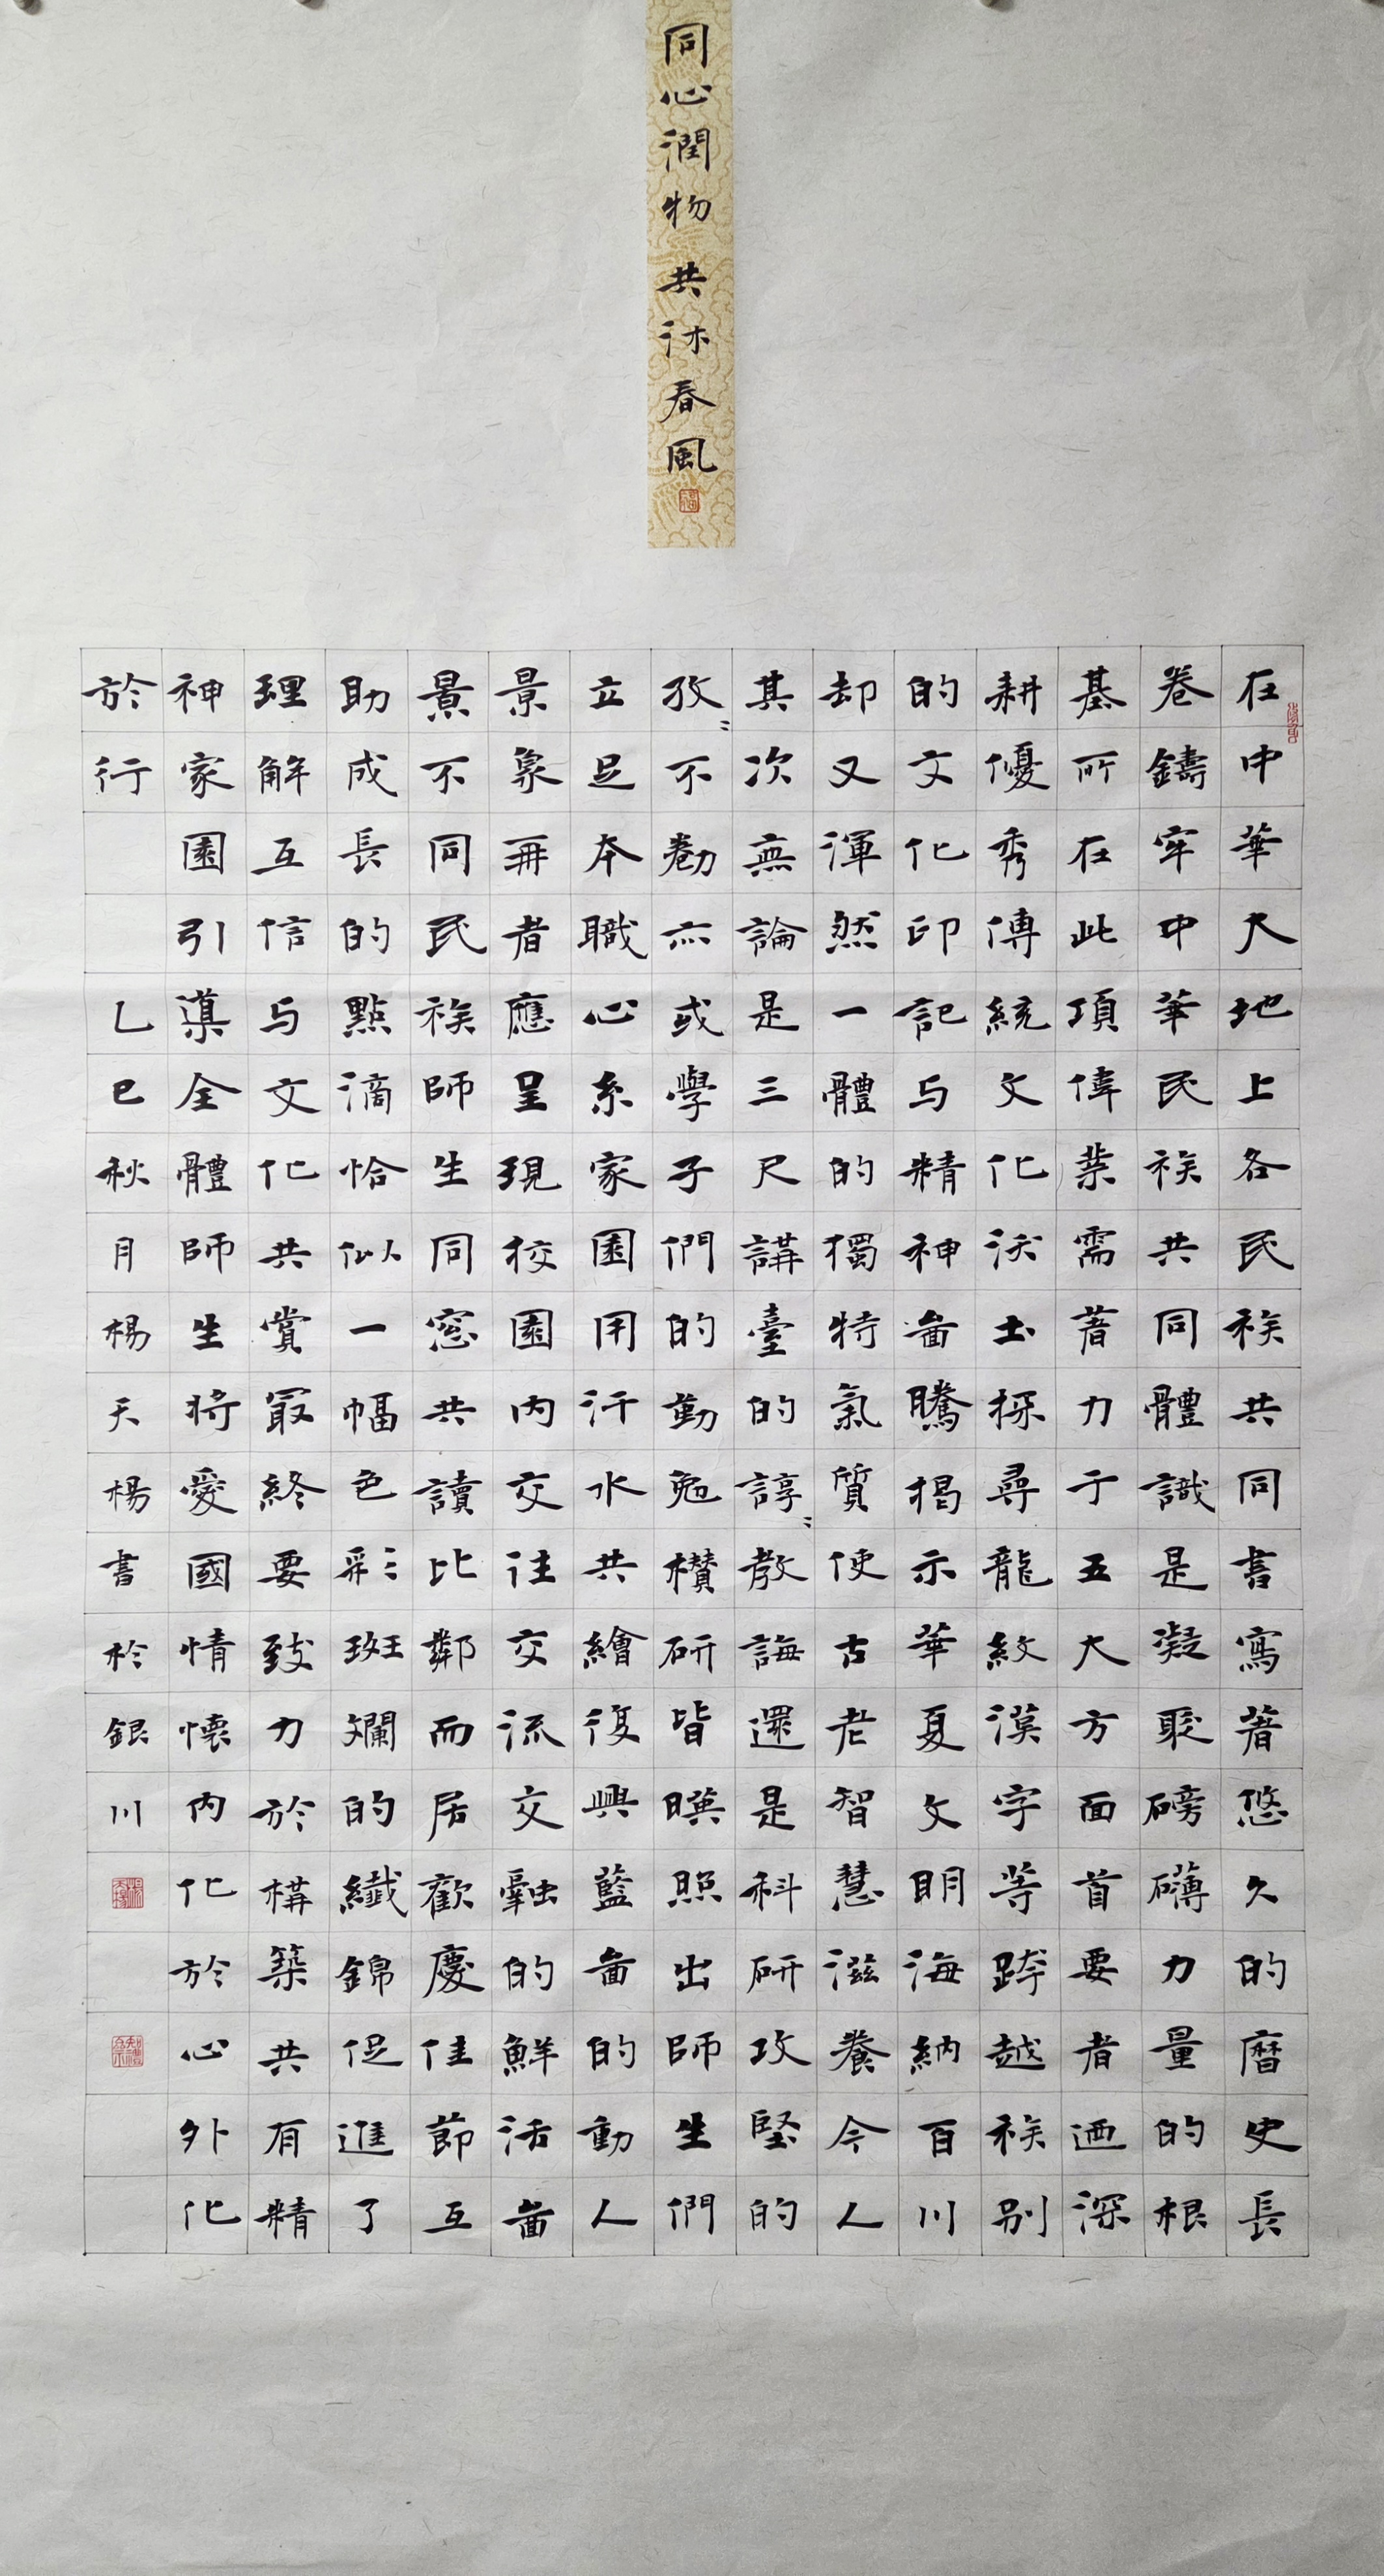 同心潤物 共沐春風
在中華大地上各民族共同書寫着悠久的曆史長
卷鑄牢中華民族共同體識是凝聚磅礴力量的根
基所在此項偉業需著力于五大方面首要者迺深
耕優秀傳統文化沃土探尋龍紋漢字等跨越族別
的文化印記与精神啚騰揭示華夏文明海納百川
却又渾然一體的獨特氣質使古老智慧滋養今人
其次無論是三尺講臺的諄〻教誨還是科研攻堅的
孜〻不勌亦或學子們的勤勉欑研皆暎照出師生們
立足本職心系家園用汗水共繪復興藍啚的動人
景象再者應呈現校園内交往交流交融的鮮活啚
景不同民族師生同窓共讀比鄰而居歡慶佳節互
助成長的點滴恰似一幅色彩斑斕的織錦促進了
理解互信与文化共賞最終要致力於構築共有精
神家園引導全體師生將愛國情懷内化於心外化
於行 乙巳秋月楊天楊書於銀川